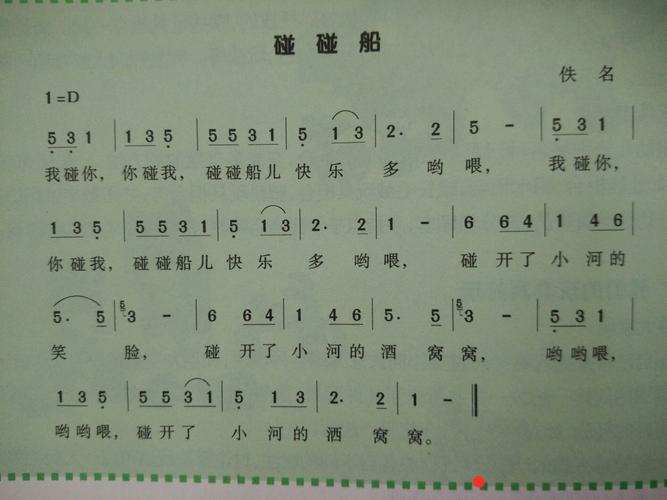 碰碰船
佚 名
1=D
5 3 1 | 1 3 5 | 5 5 3 1 | 5 1 3 | 2· 2 | 5 - | 5 3 1 |
我碰你, 你碰我, 碰碰船儿 快 乐 多 哟 喂, 我 碰你,
1 3 5 | 5 5 3 1 | 5 1 3 | 2· 2 | 1 - | 6 6 4 | 1 4 6 |
你 碰我, 碰碰船儿 快 乐 多 哟 喂, 碰 开了 小 河的
5· 5 | 5 3 - | 6 6 4 | 1 4 6 | 5· 5 | 5 3 - | 5 3 1 |
笑 脸, 碰 开了 小 河的 酒 窝 窝, 哟哟喂,
1 3 5 | 5 5 3 1 | 5 1 3 | 2· 2 | 1 - ‖
哟哟喂, 碰开了 小 河的 酒 窝窝。